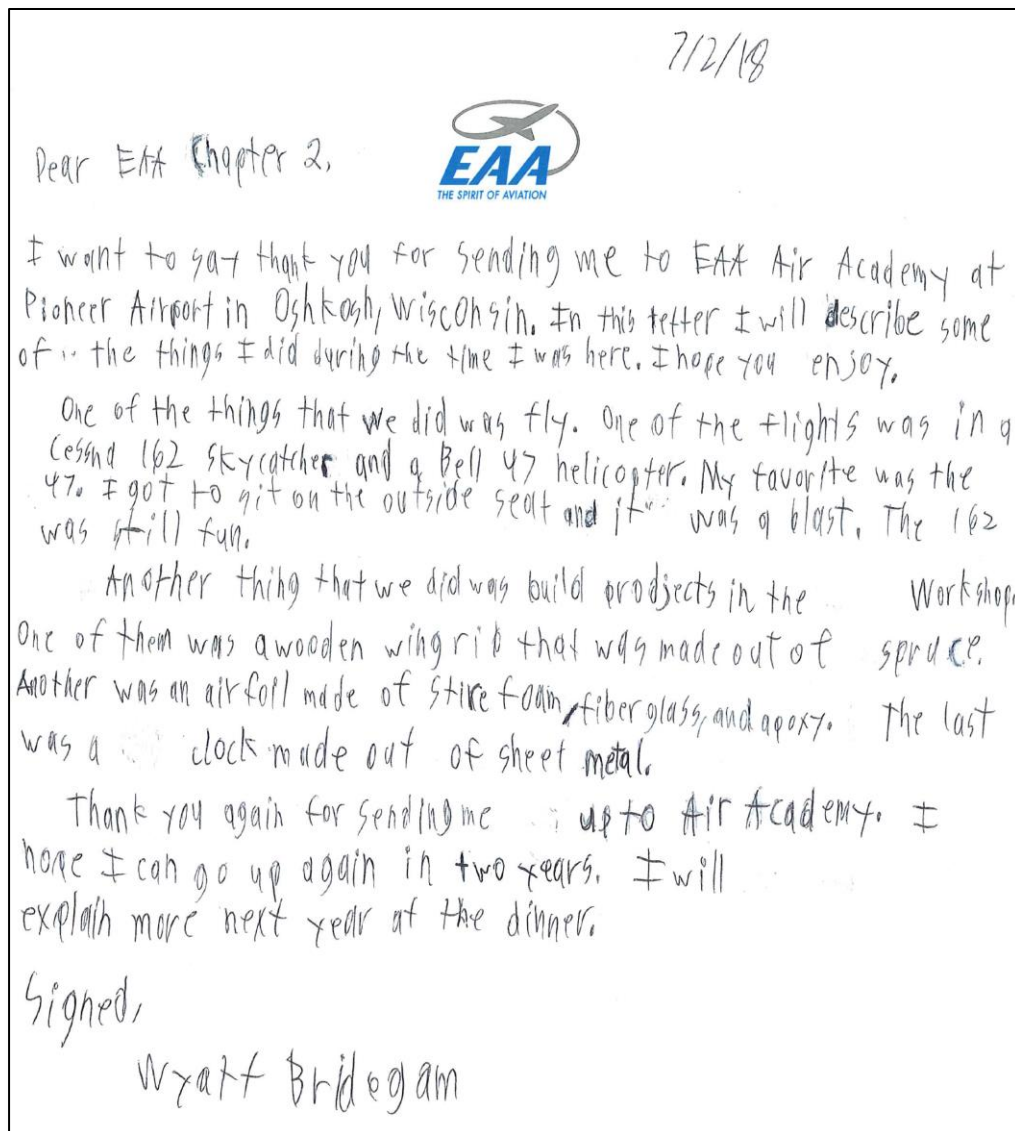 7/2/18
EAA
THE SPIRIT OF AVIATION
Dear EAA Chapter 2,
I want to say thank you for sending me to EAA Air Academy at
Pioneer Airport in Oshkosh, Wisconsin. In this letter I will describe some
of the things I did during the time I was here. I hope you enjoy.
One of the things that we did was fly. One of the flights was in a
Cessna 162 Skycatcher and a Bell 47 helicopter. My favorite was the
47. I got to sit on the outside seat and it was a blast. The 162
was still fun.
Another thing that we did was build prodjects in the Workshop.
One of them was a wooden wing rib that was made out of spruce.
Another was an airfoil made of stire foam, fiberglass, and apoxy. The last
was a clock made out of sheet metal.
Thank you again for sending me up to Air Academy. I
hope I can go up again in two years. I will
explain more next year at the dinner.
Signed,
Wyatt Bridegam